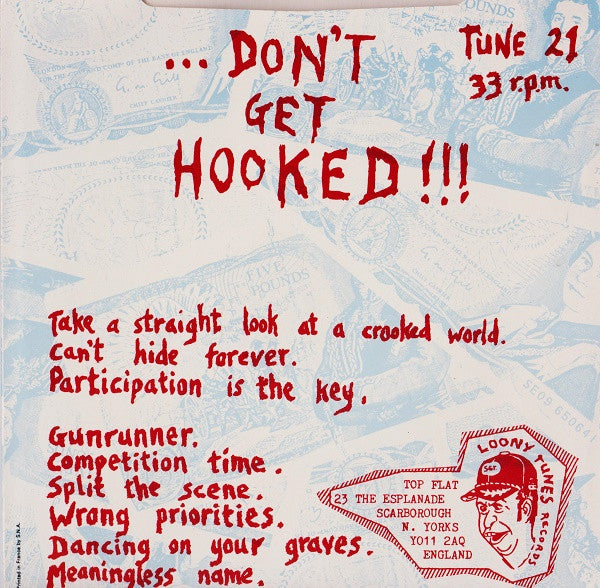 ... DON'T
GET
HOOKED!!!
TUNE 21
33 r.p.m.
Take a straight look at a crooked world.
Can't hide forever.
Participation is the key.
Gunrunner.
Competition time.
Split the scene.
Wrong priorities.
Dancing on your graves.
Meaningless name.
TOP FLAT
23 THE ESPLANADE
SCARBOROUGH
N. YORKS
YO11 2AQ
ENGLAND
LOONY TUNES RECORDS
SGT.
Printed in France by S.N.A.
FIVE
POUNDS
POUNDS
SE09 650641
CHIEF CASHIER